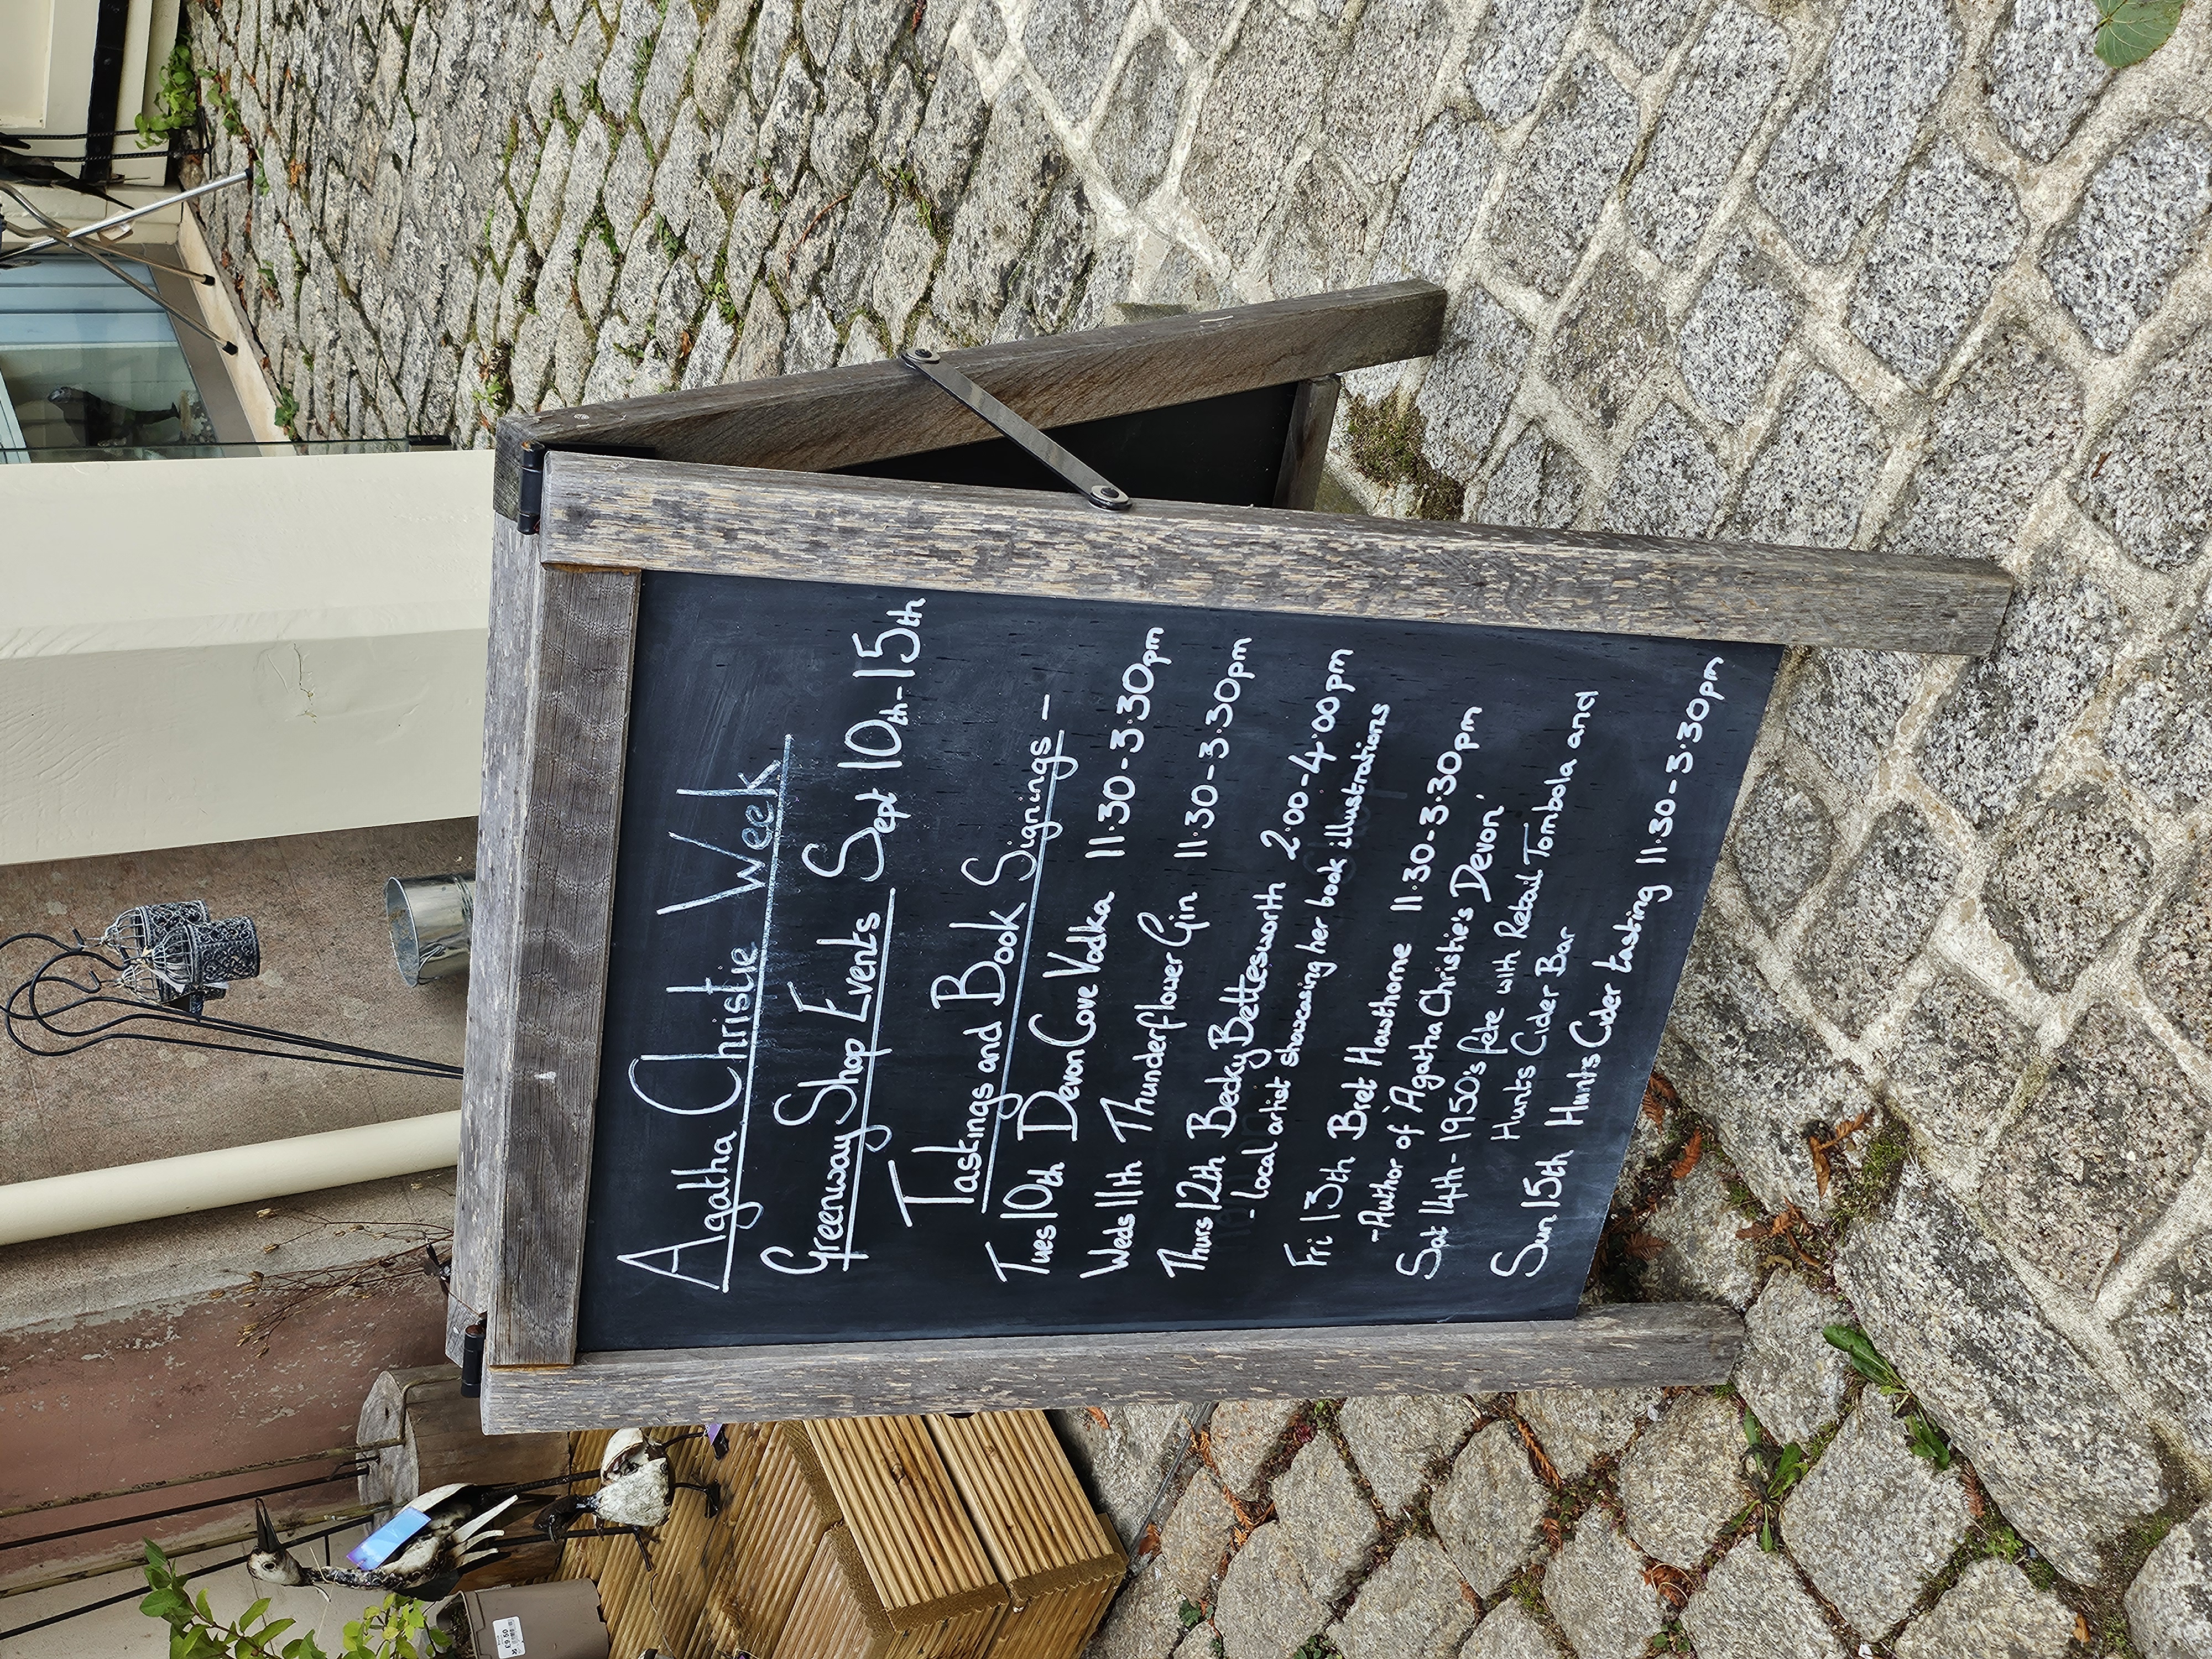 Agatha Christie Week
Greenway Shop Events Sept 10th-15th
Taskings and Book Signings -
Tues 10th Devon Cove Vodka 11.30-3.30pm
Weds 11th Thunderflower Gin 11.30-3.30pm
Thurs 12th Becky Bettesworth 2.00-4.00pm
- Local artist showcasing her book illustrations
Fri 13th Bret Hawthorne 11.30-3.30pm
-Author of 'Agatha Christie's Devon'
Sat 14th - 1950's fete with Retail Tombola and
Hunts Cider Bar
Sun 15th Hunts Cider tasting 11.30-3.30pm
£9.50